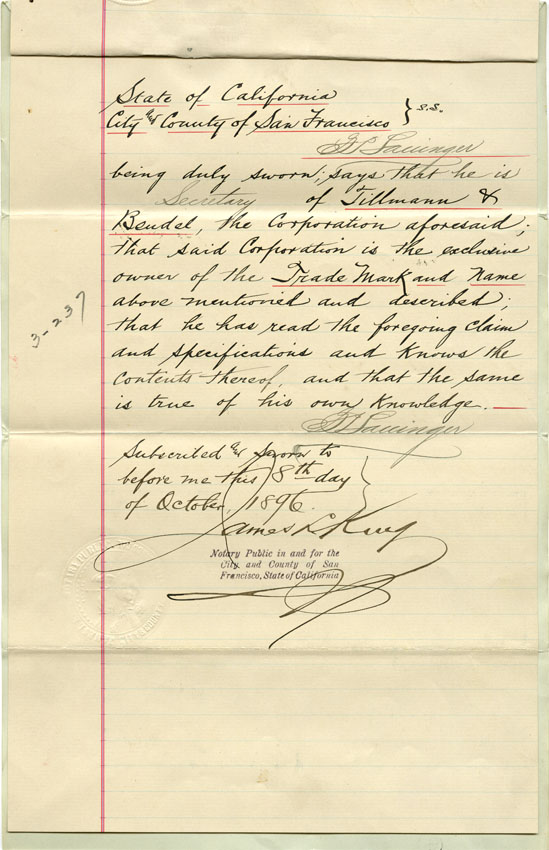 State of California
City and County of San Francisco } S.S.
being duly sworn; says that he is
Secretary of Tillmann &
Bendel, the Corporation aforesaid;
that said Corporation is the exclusive
owner of the Trade Mark and Name
above mentioned and described;
that he has read the foregoing Claim
and specifications and knows the
contents thereof, and that the same
is true of his own knowledge.
3-237
Subscribed and Sworn to
before me this 8th day
of October, 1896.
James L. King
Notary Public in and for the
City and County of San
Francisco, State of California